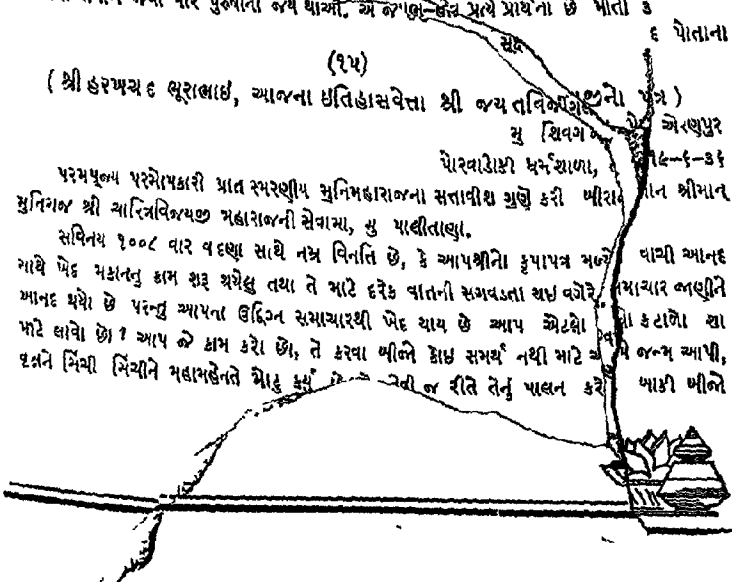 વીર પુરુષોનો જય થાઓ. એ પ્રત્યે પ્રાર્થના છે
૬ પોતાના
(૧૫)
( શ્રી હરખચદ ભૂરાભાઈ, આજના ઇતિહાસવેત્તા શ્રી જયતવિજયજીનો પત્ર )
મુ શિવગ એરણપુર
પોરવાડોકી ધર્મશાળા, ૧૯-૬-૩૬
પરમપૂજ્ય પરમોપકારી પ્રાત સ્મરણીય મુનિમહારાજના સત્તાવીશ ગુણે કરી શ્રીમાન્
મુનિરાજ શ્રી ચારિત્રવિજયજી મહારાજની સેવામા, મુ પાલીતાણા.
સવિનય ૧૦૦૮ વાર વદણા સાથે નમ્ર વિનતિ છે, કે આપશ્રીનો કૃપાપત્ર મળ્યો વાચી આનદ
સાથે ખેદ મકાનનુ કામ શરૂ થયેલુ તથા તે માટે દરેક વાતની સગવડતા થઇ વગેરે સમાચાર જાણીને
આનદ થયો છે પરન્તુ આપના ઉદ્વિગ્ન સમાચારથી ખેદ થાય છે આપ એટલો કટાળો શા
માટે લાવો છો? આપ જે કામ કરો છો, તે કરવા બીજો કોઇ સમર્થ નથી માટે જન્મ આપી,
વૃક્ષને સિંચી સિંચીને મહામહેનતે મોટુ કર્યું જ રીતે તેનું પાલન કરો બાકી બીજો